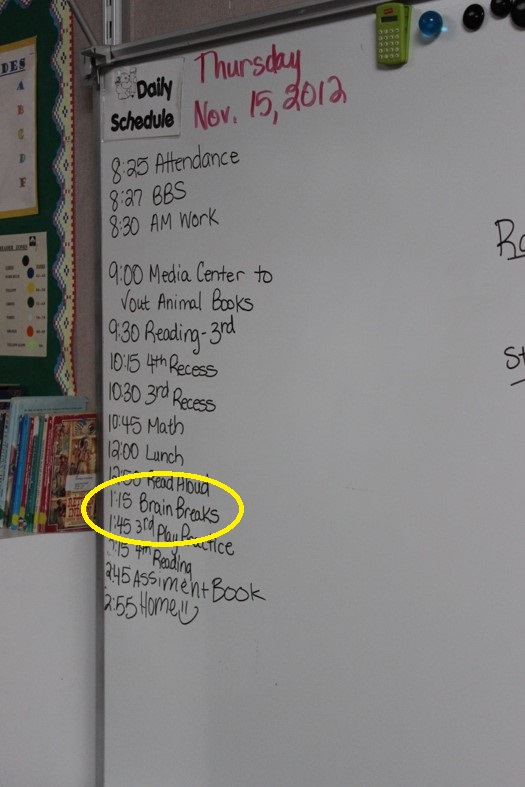 DES
A
B
C
D
E
F
Daily
Schedule
Thursday
Nov. 15, 2012
8:25 Attendance
8:27 BBS
8:30 AM Work
9:00 Media Center to
Vout Animal Books
9:30 Reading-3rd
10:15 4th Recess
10:30 3rd Recess
10:45 Math
12:00 Lunch
12:50 Read Aloud
1:15 Brain Breaks
1:45 3rd Play Practice
2:15 4th Reading
2:45 Assiment Book
2:55 Home!!